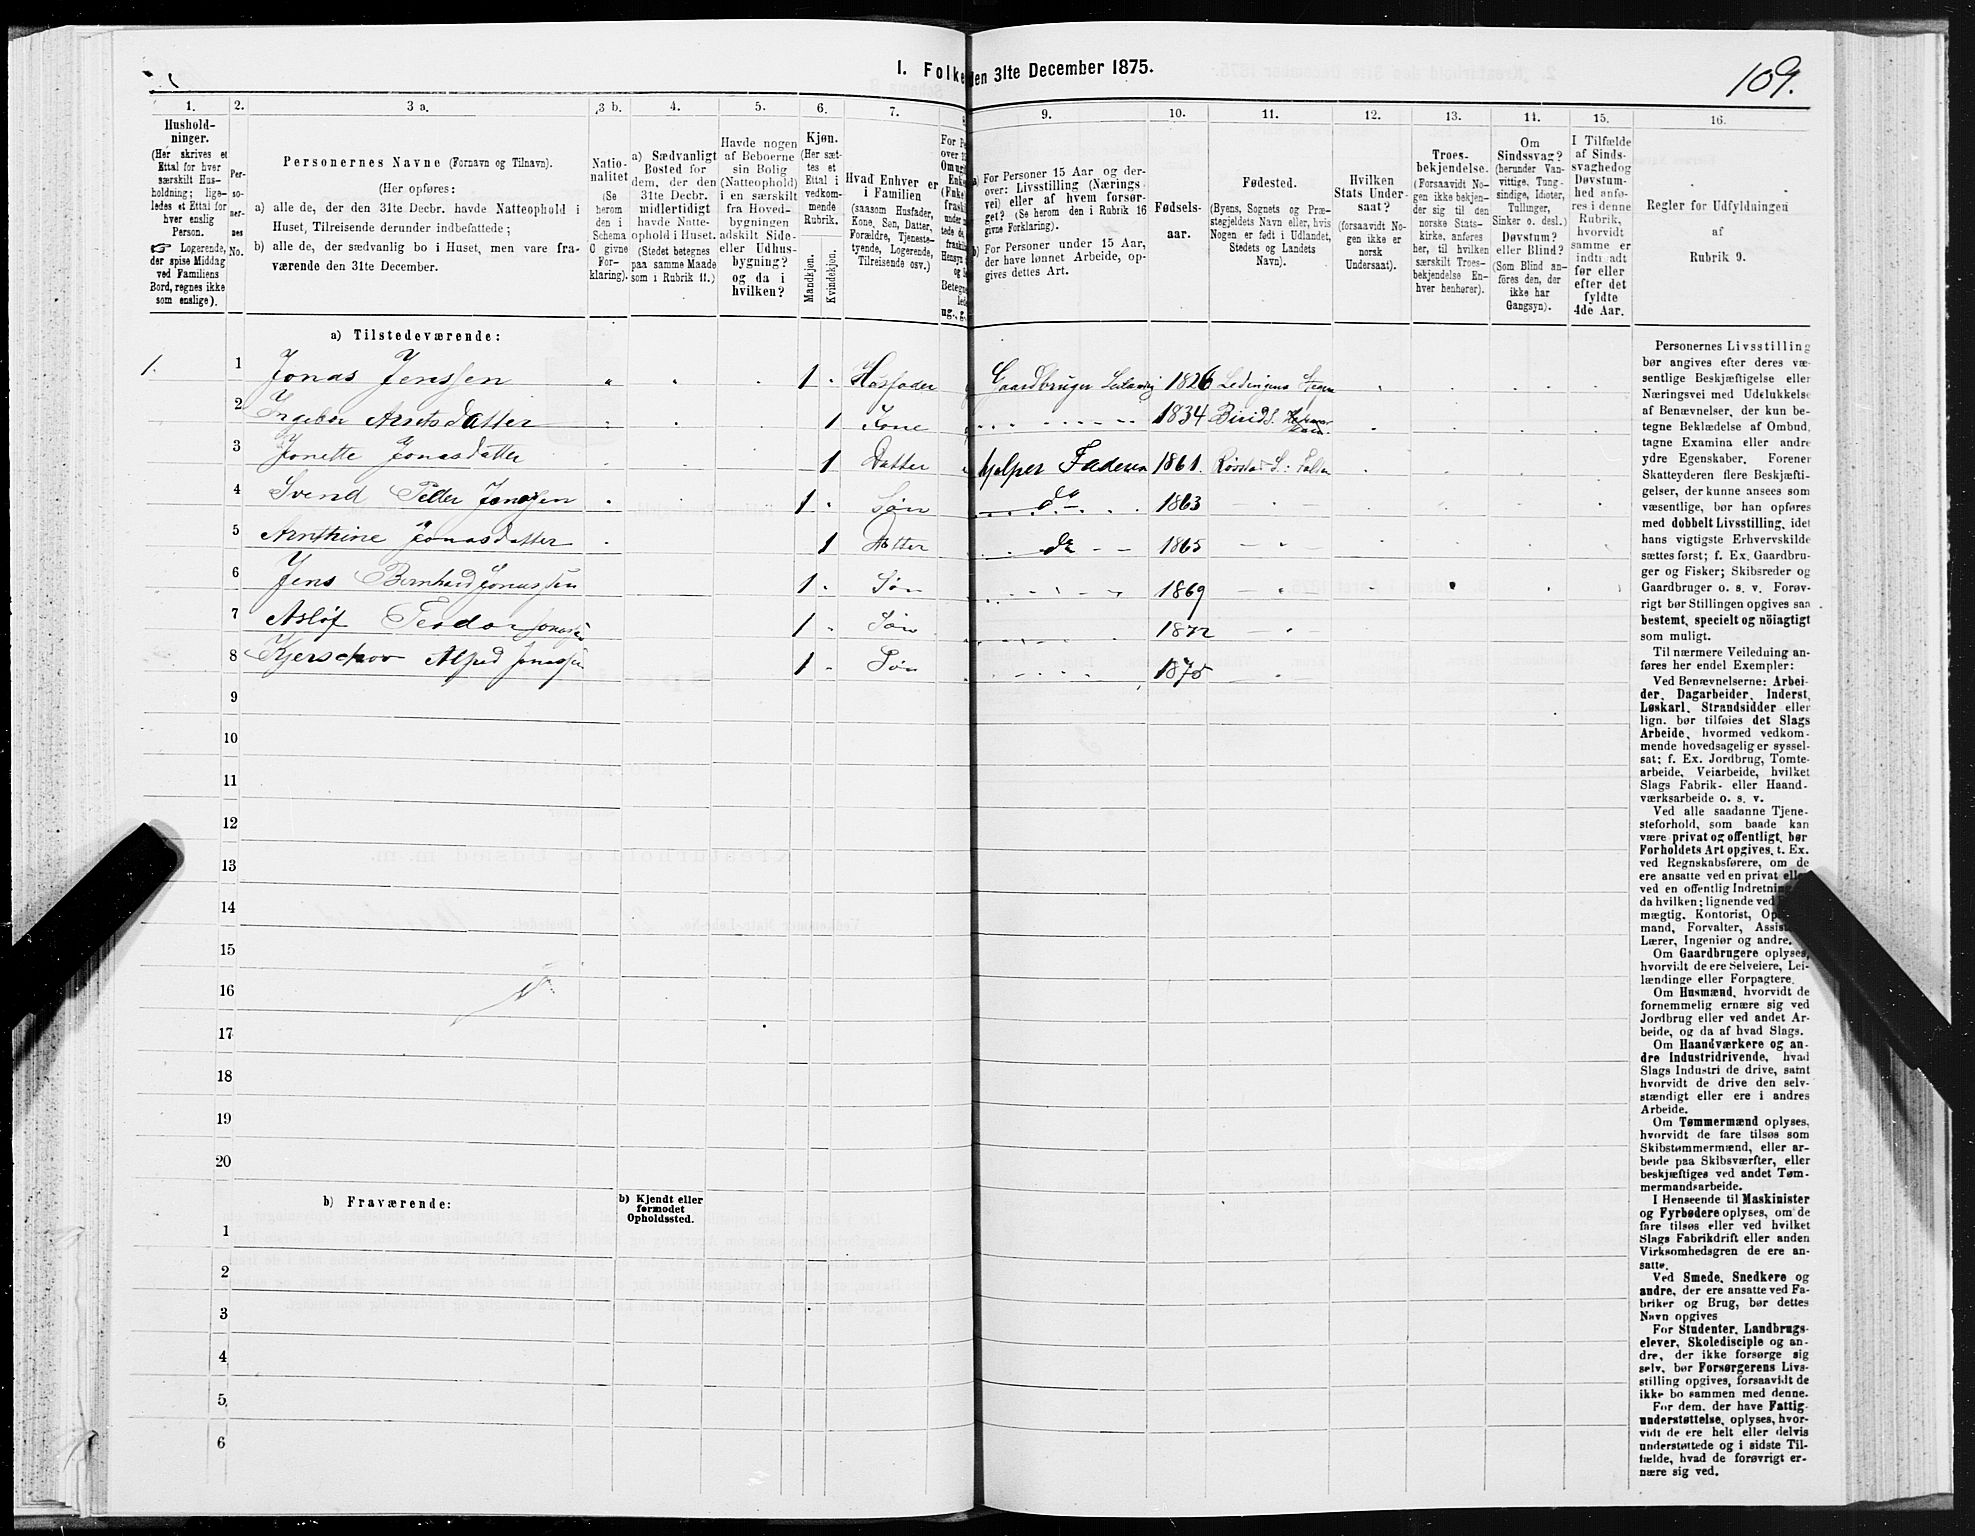 I. Folke
den 31te December 1875.
109.
1.
2.
3 a.
3 b.
4.
5.
6.
7.
8
9.
10.
11.
12.
13.
14.
15.
16.
Hushold-
ninger.
(Her skrives et
Ettal for hver
særskilt Hus-
holdning; lige-
ledes et Ettal for
hver enslig
Person.
☞ Logerende,
der spise Middag
ved Familiens
Bord, regnes ikke
som enslige).
Per-
so-
ner-
nes
No.
Personernes Navne (Fornavn og Tilnavn).
(Her opføres:
a) alle de, der den 31te Decbr. havde Natteophold i
Huset, Tilreisende derunder indbefattede;
b) alle de, der sædvanlig bo i Huset, men vare fra-
værende den 31te December.
Natio-
nalitet
(Se
herom
den i
Schema
C givne
For-
klaring).
a) Sædvanligt
Bosted for
dem, der den
31te Decbr.
midlertidigt
havde Natte-
ophold i Huset.
(Stedet betegnes
paa samme Maade
som i Rubrik 11.)
Havde nogen
af Beboerne
sin Bolig
(Natteophold)
i en særskilt
fra Hoved-
bygningen
adskilt Side-
eller Udhus-
bygning?
og da i
hvilken?
Kjøn.
(Her sæt-
tes et
Ettal i
vedkom-
mende
Rubrik.
Mandkjøn.
Kvindekjøn.
Hvad Enhver er
i Familien
(saasom Husfader,
Kone, Søn, Datter,
Forældre, Tjeneste-
tyende, Logerende,
Tilreisende osv.)
For P
over 1
Omug
Enke
(Enke
frask
under
tede
frask
Hensyn
og
Betegn
led
ug., g.,
a) For Personer 15 Aar og der-
over: Livsstilling (Nærings
vei) eller af hvem forsør-
get? (Se herom den i Rubrik 16
givne Forklaring).
b) For Personer under 15 Aar,
der have lønnet Arbeide, op-
gives dettes Art.
Fødsels-
aar.
Fødested.
(Byens, Sognets og Præ-
stegjeldets Navn eller, hvis
Nogen er født i Udlandet,
Stedets og Landets
Navn).
Hvilken
Stats Under-
saat?
(forsaavidt No-
gen ikke er
norsk
Undersaat).
Troes-
bekjendelse.
(Forsaavidt No-
gen ikke bekjen-
der sig til den
norske Stats-
kirke, anføres
her, til hvilken
særskilt Troes-
bekjendelse En-
hver henhører).
Om
Sindssvag?
(herunder Van-
vittige, Tung-
sindige, Idioter,
Tullinger,
Sinker o. desl.)
Døvstum?
eller Blind?
(Som Blind an-
føres den, der
ikke har
Gangsyn).
I Tilfælde
af Sinds-
svaghedog
Døvstum-
hed anfø-
res i denne
Rubrik,
hvorvidt
samme er
indtraadt
før eller
efter det
fyldte
4de Aar.
Regler for Udfyldningen
af
Rubrik 9.
a) Tilstedeværende:
1. 1 Jonas Jenssen 1 Husfader Gaardbruger 1826
2 Arntsdatter 1 Kone 1834
3 Jonette Jonasdatter 1 Datter hjelper Faderen 1861
4 Svend Peder Jonassen 1 Søn do 1863
5 Arnthine Jonasdatter 1 Datter do 1865
6 Jens Bernhard Jonassen 1 Søn 1869
7 Asløf Teodor Jonasen 1 Søn 1872
8 Alfred Jonassen 1 Søn 1875
9
10
11
12
13
14
15
16
17
18
19
20
b) Fraværende:
b) Kjendt eller
formodet
Opholdssted.
1
2
3
4
5
6
Personernes Livsstilling
bør angives efter deres væ-
sentlige Beskjæftigelse eller
Næringsvei med Udelukkelse
af Benævnelser, der kun be-
tegne Beklædelse af Ombud,
tagne Examina eller andre
ydre Egenskaber. Forener
Skatteyderen flere Beskjæfti-
gelser, der kunne ansees som
væsentlige, bør han opføres
med dobbelt Livsstilling, idet
hans vigtigste Erhvervskilde
sættes først; f. Ex. Gaardbru-
ger og Fisker; Skibsreder og
Gaardbruger o. s. v. Forøv-
rigt bør Stillingen opgives saa
bestemt, specielt og nöiagtigt
som muligt.
Til nærmere Veiledning an-
føres her endel Exempler:
Ved Benævnelserne: Arbei-
der, Dagarbeider, Inderst,
Løskarl, Strandsidder eller
lign. bør tilføies det Slags
Arbeide, hvormed vedkom-
mende hovedsagelig er syssel-
sat; f. Ex. Jordbrug, Tomte-
arbeide, Veiarbeide, hvilket
Slags Fabrik- eller Haand-
værksarbeide o. s. v.
Ved alle saadanne Tjene-
steforhold, som baade kan
være privat og offentligt, bør
Forholdets Art opgives, t. Ex.
ved Regnskabsførere, om de
ere ansatte ved en privat eller
ved en offentlig Indretning
da hvilken; lignende ved
mægtig, Kontorist, Op
mand, Forvalter, Assist
Lærer, Ingeniør og andre.
Om Gaardbrugere oplyses,
hvorvidt de ere Selveiere, Lei-
lændinge eller Forpagtere.
Om Husmænd, hvorvidt de
fornemmelig ernære sig ved
Jordbrug eller ved andet Ar-
beide, og da af hvad Slags.
Om Haandværkere og an-
dre Industridrivende, hvad
Slags Industri de drive, samt
hvorvidt de drive den selv-
stændigt eller ere i andres
Arbeide.
Om Tømmermænd oplyses,
hvorvidt de fare tilsøs som
Skibstømmermænd, eller ar-
beide paa Skibsværfter, eller
beskjæftiges ved andet Tøm-
mermandsarbeide.
I Henseende til Maskinister
og Fyrbødere oplyses, om de
fare tilsøs eller ved hvilket
Slags Fabrikdrift eller anden
Virksomhedsgren de ere an-
satte.
Ved Smede, Snedkere og
andre, der ere ansatte ved Fa-
briker og Brug, bør dettes
Navn opgives
For Studenter, Landbrugs-
elever, Skoledisciple og an-
dre, der ikke forsørge sig
selv, bør Forsørgerens Livs-
stilling opgives, forsaavidt de
ikke bo sammen med denne.
For dem, der have Fattig-
understøttelse, oplyses, hvor-
vidt de ere helt eller delvis
understøttede og i sidste Til-
fælde, hvad de forøvrigt er-
nære sig ved.